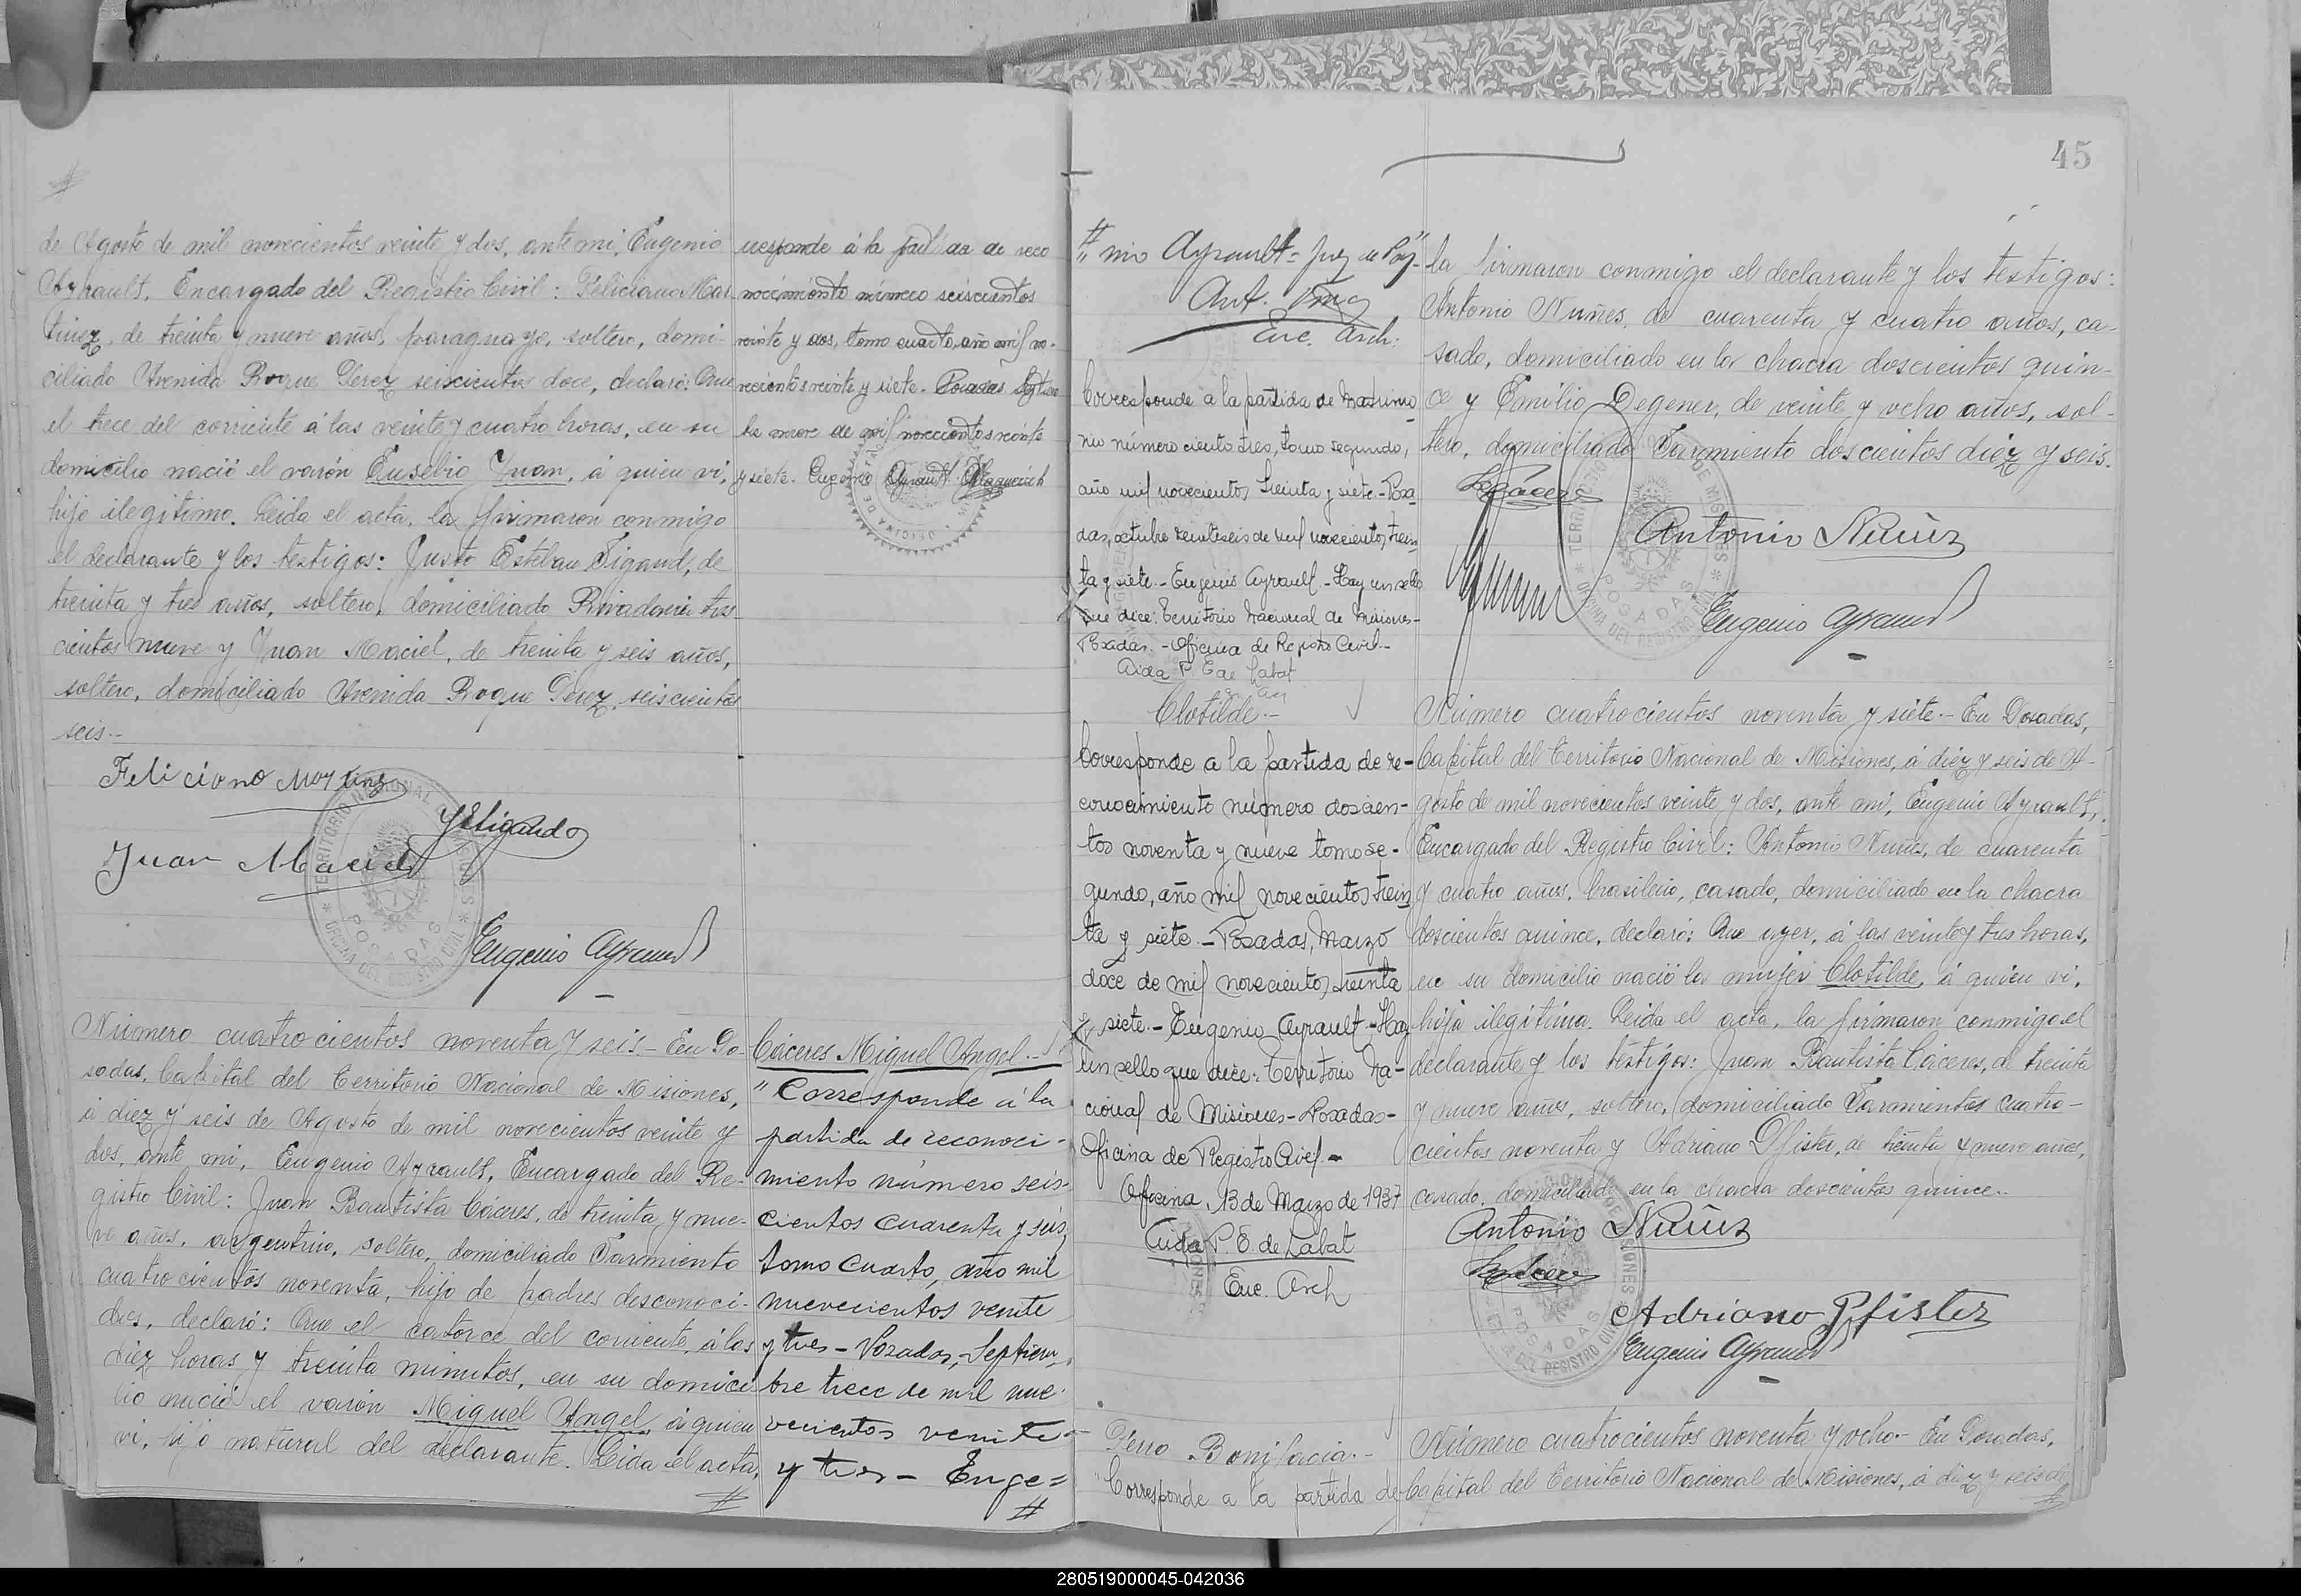 #
de Agosto de mil novecientos veinte y dos, ante mi, Eugenio
Ayrault, Encargado del Registro Civil: Feliciano Mar
tinez, de treinta y nueve años, paraguayo, soltero, domi-
ciliado Avenida Roque Perez seiscientos doce, declaró: Que
el trece del corriente á las veinte y cuatro horas, en su
domicilio nació el varón Eusebio Juan, á quien vi,
hijo ilegitimo. Leida el acta, la firmaron conmigo
el declarante y los testigos: Justo Esteban Tigand, de
treinta y tres años, soltero, domiciliado Rivadavia tres-
cientos nueve y Juan Maciel, de treinta y seis años,
soltero, domiciliado Avenida Roque Perez, seiscientos
seis.-
Feliciano Martinez
Juan Maciel
Eugenio Ayrault
TERRITORIO NACIONAL DE MISIONES
POSADAS
OFICINA DEL REGISTRO CIVIL
responde á la partida de reco
nocimiento número seiscientos
veinte y dos, tomo cuarto, año mil no-
vecientos veinte y siete. Posadas Sptiem
bre nueve de mil novecientos veinte
y siete. Eugenio Ayrault.
Número cuatrocientos noventa y seis.- En Po-
sadas, Capital del Territorio Nacional de Misiones,
á diez y seis de Agosto de mil novecientos veinte y
dos, ante mi, Eugenio Ayrault, Encargado del Re-
gistro Civil: Juan Bautista Cáceres, de treinta y nue-
ve años, argentino, soltero, domiciliado Sarmiento
cuatrocientos noventa, hijo de padres desconoci-
dos, declaró: Que el catorce del corriente, á las
diez horas y treinta minutos, en su domici-
lio nació el varón Miguel Angel, á quien
vi, hijo natural del declarante. Leida el acta,
#
Cáceres Miguel Angel.-
"Corresponde á la
partida de reconoci-
miento número seis-
cientos cuarenta y seis,
tomo cuarto, año mil
nuevecientos veinte
y tres - Posadas, Septiem-
bre trece de mil nue-
vecientos veinte
y tres - Euge=
#
45
#
"nio Ayrault = Juez de Paz"
Enc. Arch.
Corresponde a la partida de matrimo
nio número ciento tres, tomo segundo,
año mil novecientos treinta y siete.-Posa
das, octubre veintiseis de mil novecientos trein
ta y siete.-Eugenio Ayrault.-Hay un sello
que dice: Territorio Nacional de Misiones-
Posadas.-Oficina de Registro Civil.-
Aida P. E. de Labat
Clotilde.-
Corresponde a la partida de re-
conocimiento número doscien-
tos noventa y nueve tomo se-
gundo, año mil novecientos trein
ta y siete.-Posadas, Marzo
doce de mil novecientos treinta
y siete.-Eugenio Ayrault.-Hay
un sello que dice: Territorio Na-
cional de Misiones-Posadas-
Oficina de Registro Civil.-
Oficina, 13 de Marzo de 1937
Aida P. E. de Labat
Enc. Arch
Bonifacia.-
"Corresponde a la partida de
la firmaron conmigo el declarante y los testigos:
Antonio Nuñes, de cuarenta y cuatro años, ca-
sado, domiciliado en la chacra doscientos quin-
ce y Emilio Degener, de veinte y ocho años, sol-
tero, domiciliado Sarmiento doscientos diez y seis.
Antonio Nuñez
Eugenio Ayrault
TERRITORIO NACIONAL DE MISIONES
POSADAS
OFICINA DEL REGISTRO CIVIL
Número cuatrocientos noventa y siete.- En Posadas,
Capital del Territorio Nacional de Misiones, á diez y seis de A-
gosto de mil novecientos veinte y dos, ante mi, Eugenio Ayrault,
Encargado del Registro Civil: Antonio Nuñes, de cuarenta
y cuatro años, brasilero, casado, domiciliado en la chacra
doscientos quince, declaró: Que ayer, á las veinte y tres horas,
en su domicilio nació la mujer Clotilde, á quien vi,
hija ilegitima. Leida el acta, la firmaron conmigo el
declarante y los testigos: Juan Bautista Cáceres, de treinta
y nueve años, soltero, domiciliado Sarmientos cuatro-
cientos noventa y Adriano Pfister, de treinta y nueve años,
casado, domiciliado en la chacra doscientos quince.-
Antonio Nuñez
Adriano Pfister
Eugenio Ayrault
Número cuatrocientos noventa y ocho.- En Posadas,
Capital del Territorio Nacional de Misiones, á diez y seis de
#
280519000045-042036